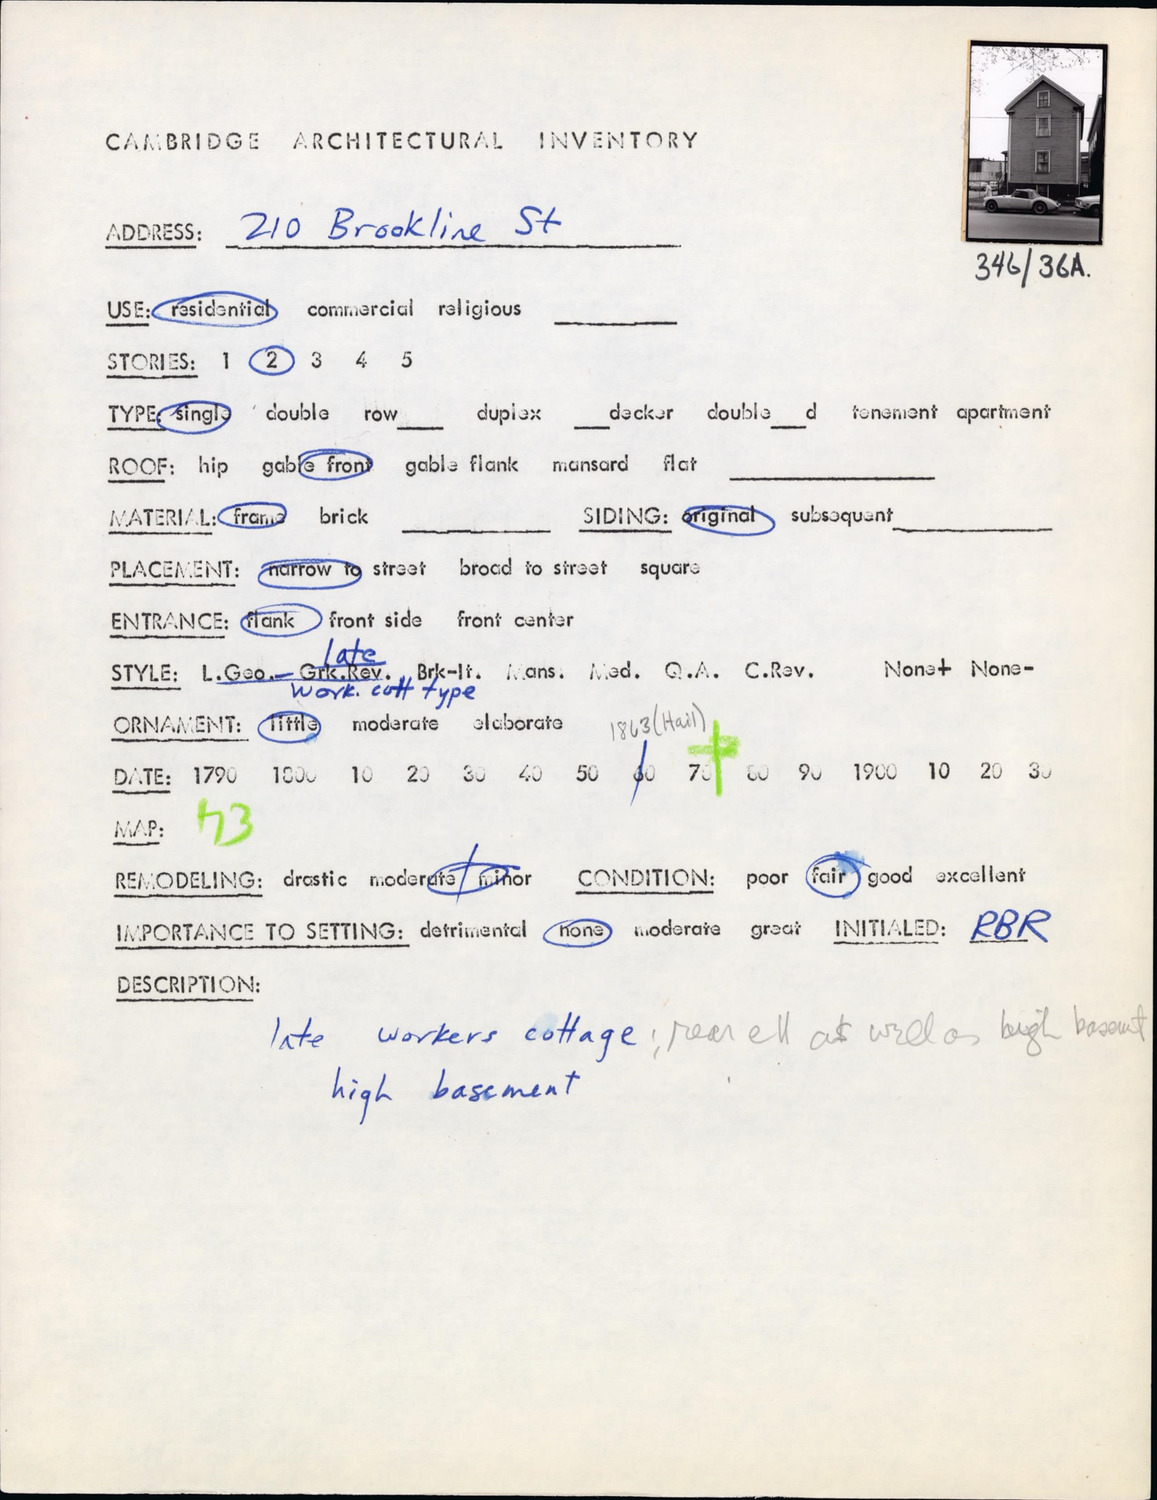 CAMBRIDGE ARCHITECTURAL INVENTORY
346/36A.
ADDRESS: 210 Brookline St
USE: residential commercial religious
STORIES: 1 2 3 4 5
TYPE: single double row___ duplex ___decker double___d tenement apartment
ROOF: hip gable front gable flank mansard flat
MATERIAL: frame brick SIDING: original subsequent
PLACEMENT: narrow to street broad to street square
ENTRANCE: flank front side front center
late
STYLE: L.Geo. Grk.Rev. Brk-It. Mans. Med. Q.A. C.Rev. None+ None-
work. cott type
ORNAMENT: little moderate elaborate 1863 (Hail)
DATE: 1790 1800 10 20 30 40 50 60 70 80 90 1900 10 20 30
MAP: 43
REMODELING: drastic moderate minor CONDITION: poor fair good excellent
IMPORTANCE TO SETTING: detrimental none moderate great INITIALED: RBR
DESCRIPTION:
late workers cottage; rear ell as well as high basemt
high basement